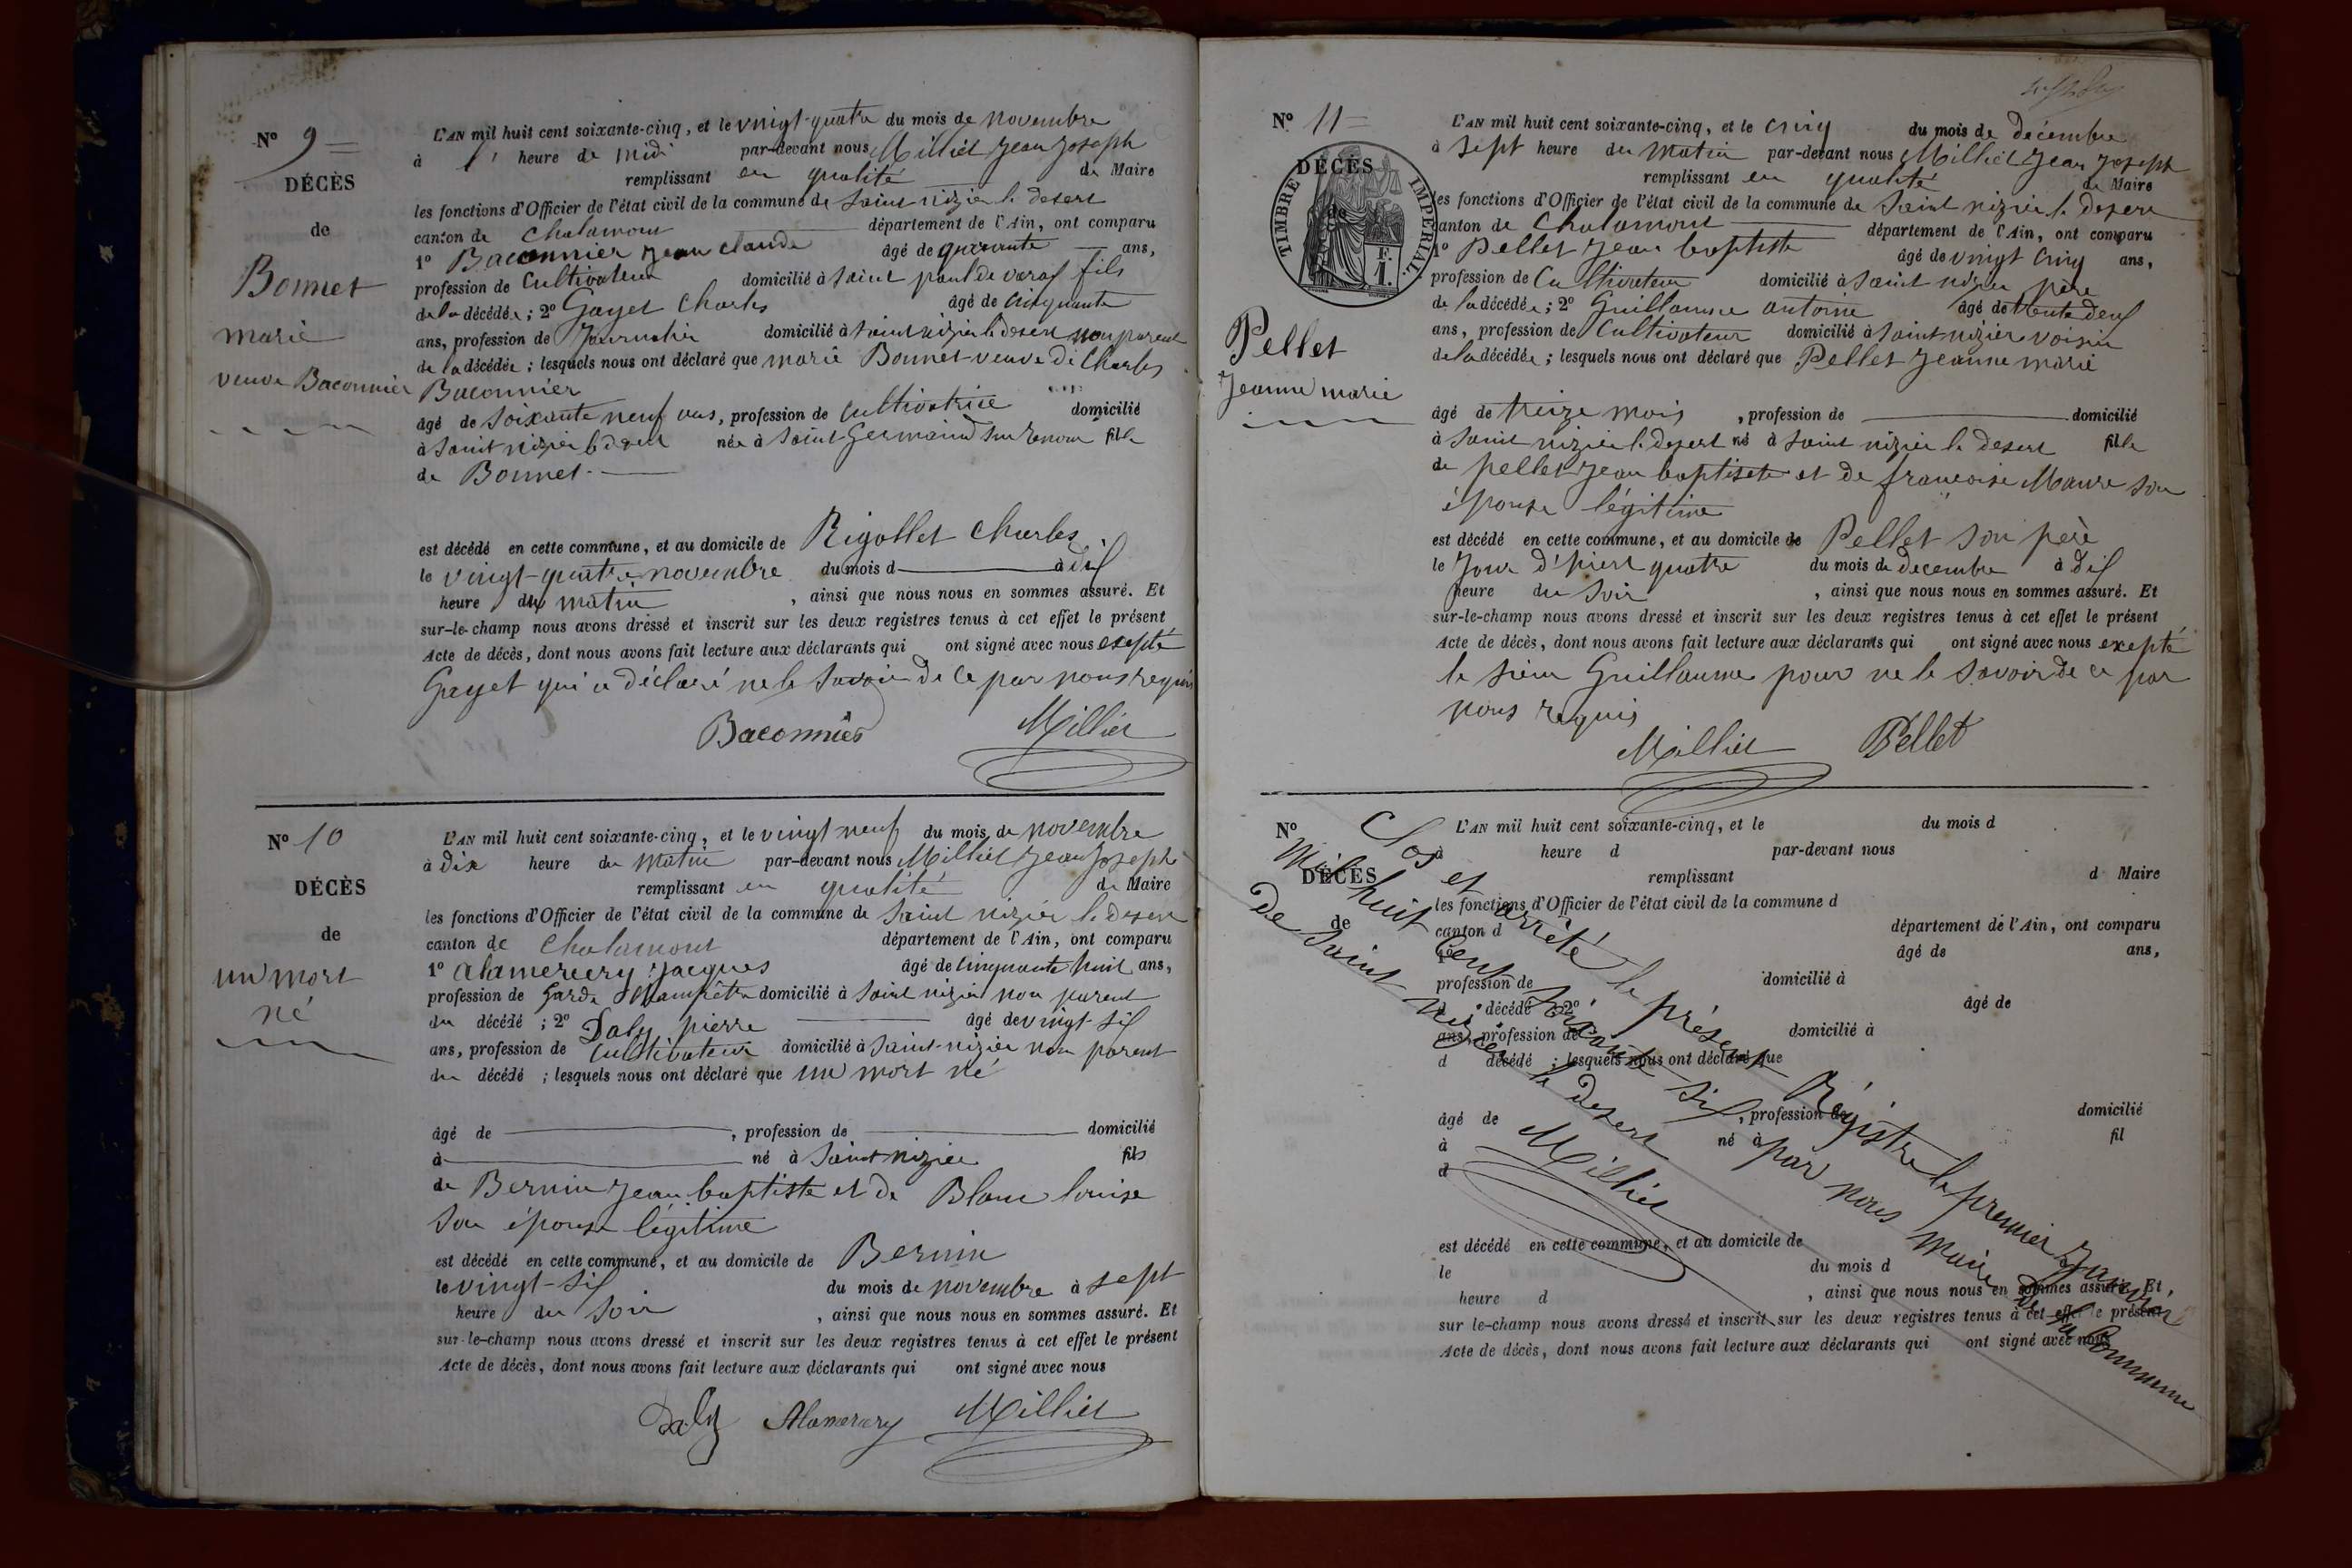 N° 9
DÉCÈS
de
Bonnet
marie
veuve Baconnier
L'AN mil huit cent soixante-cinq, et le vingt-quatre du mois de novembre
à l' heure de midi par-devant nous Milliet Jean Joseph
remplissant en qualité de Maire
les fonctions d'Officier de l'état civil de la commune de Saint nizier le desert
canton de Chalamont département de l'Ain, ont comparu
1° Baconnier Jean claude âgé de quarante ans,
profession de Cultivateur domicilié à Saint paul de varax fils
de la décédée ; 2° Gayet Charles âgé de cinquante
ans, profession de Journalier domicilié à Saint nizier le desert non parent
de la décédée ; lesquels nous ont déclaré que marie Bonnet veuve de Charles
Baconnier
âgé de soixante neuf ans, profession de Cultivatrice domicilié
à Saint nizier le desert née à Saint Germaind Sur Renom fille
de Bonnet
est décédé en cette commune, et au domicile de Rigollet Charles
le vingt-quatre novembre du mois d à dix
heure du matin , ainsi que nous nous en sommes assuré. Et
sur-le-champ nous avons dressé et inscrit sur les deux registres tenus à cet effet le présent
Acte de décès, dont nous avons fait lecture aux déclarants qui ont signé avec nous exepté
Gayet qui a déclaré ne le Savoir de ce par nous requis
Baconnier Milliet
N° 10
DÉCÈS
de
un mort
né
L'AN mil huit cent soixante-cinq, et le vingt neuf du mois de novembre
à dix heure du matin par-devant nous Milliet Jean Joseph
remplissant en qualité de Maire
les fonctions d'Officier de l'état civil de la commune de Saint nizier le desert
canton de Chalamont département de l'Ain, ont comparu
1° Alamercery Jacques âgé de cinquante huit ans,
profession de Garde Champêtre domicilié à Saint nizier non parent
du décédé ; 2° Daly pierre âgé de vingt-six
ans, profession de Cultivateur domicilié à Saint-nizier non parent
du décédé ; lesquels nous ont déclaré que un mort né
âgé de , profession de domicilié
à né à Saint nizier fils
de Bernin Jean baptiste et de Blanc louise
Son épouse légitime
est décédé en cette commune, et au domicile de Bernin
le vingt-six du mois de novembre à sept
heure du Soir , ainsi que nous nous en sommes assuré. Et
sur-le-champ nous avons dressé et inscrit sur les deux registres tenus à cet effet le présent
Acte de décès, dont nous avons fait lecture aux déclarants qui ont signé avec nous
Daly Alamercery Milliet
N° 11
DÉCÈS
de
TIMBRE IMPÉRIAL.
1 F.
Pellet
Jeanne marie
L'AN mil huit cent soixante-cinq, et le cinq du mois de décembre
à Sept heure du matin par-devant nous Milliet Jean Joseph
remplissant en qualité de Maire
les fonctions d'Officier de l'état civil de la commune de Saint nizier le desert
canton de Chalamont département de l'Ain, ont comparu
1° Pellet Jean baptiste âgé de vingt cinq ans,
profession de Cultivateur domicilié à Saint nizier père
de la décédée ; 2° Guillaume antoine âgé de trente deux
ans, profession de Cultivateur domicilié à Saint-nizier voisin
de la décédée ; lesquels nous ont déclaré que Pellet Jeanne marie
âgé de treize mois , profession de domicilié
à Saint nizier le desert né à Saint nizier le desert fille
de pellet Jean baptiste et de francoise Maure Son
épouse légitime
est décédé en cette commune, et au domicile de Pellet Son père
le Jour d'hiert quatre du mois de decembre à dix
heure du Soir , ainsi que nous nous en sommes assuré. Et
sur-le-champ nous avons dressé et inscrit sur les deux registres tenus à cet effet le présent
Acte de décès, dont nous avons fait lecture aux déclarants qui ont signé avec nous exepté
le Sieur Guillaume pour ne le Savoir de ce par
nous requis
Milliet Pellet
N°
DÉCÈS
de
L'AN mil huit cent soixante-cinq, et le du mois d
à heure d par-devant nous
remplissant d Maire
les fonctions d'Officier de l'état civil de la commune d
canton d département de l'Ain, ont comparu
1° âgé de ans,
profession de domicilié à
d décédé ; 2° âgé de
ans, profession de domicilié à
d décédé ; lesquels nous ont déclaré que
âgé de , profession de domicilié
à né à fil
d
est décédé en cette commune, et au domicile de
le du mois d
heure d , ainsi que nous nous en sommes assuré. Et
sur le-champ nous avons dressé et inscrit sur les deux registres tenus à cet effet le présent
Acte de décès, dont nous avons fait lecture aux déclarants qui ont signé avec nous
Clos et arrêté le présent Régistre le premier Janvier
Mil huit Cent Soixante-Six par nous Maire de la Commune
De Saint-nizier le desert
Milliet